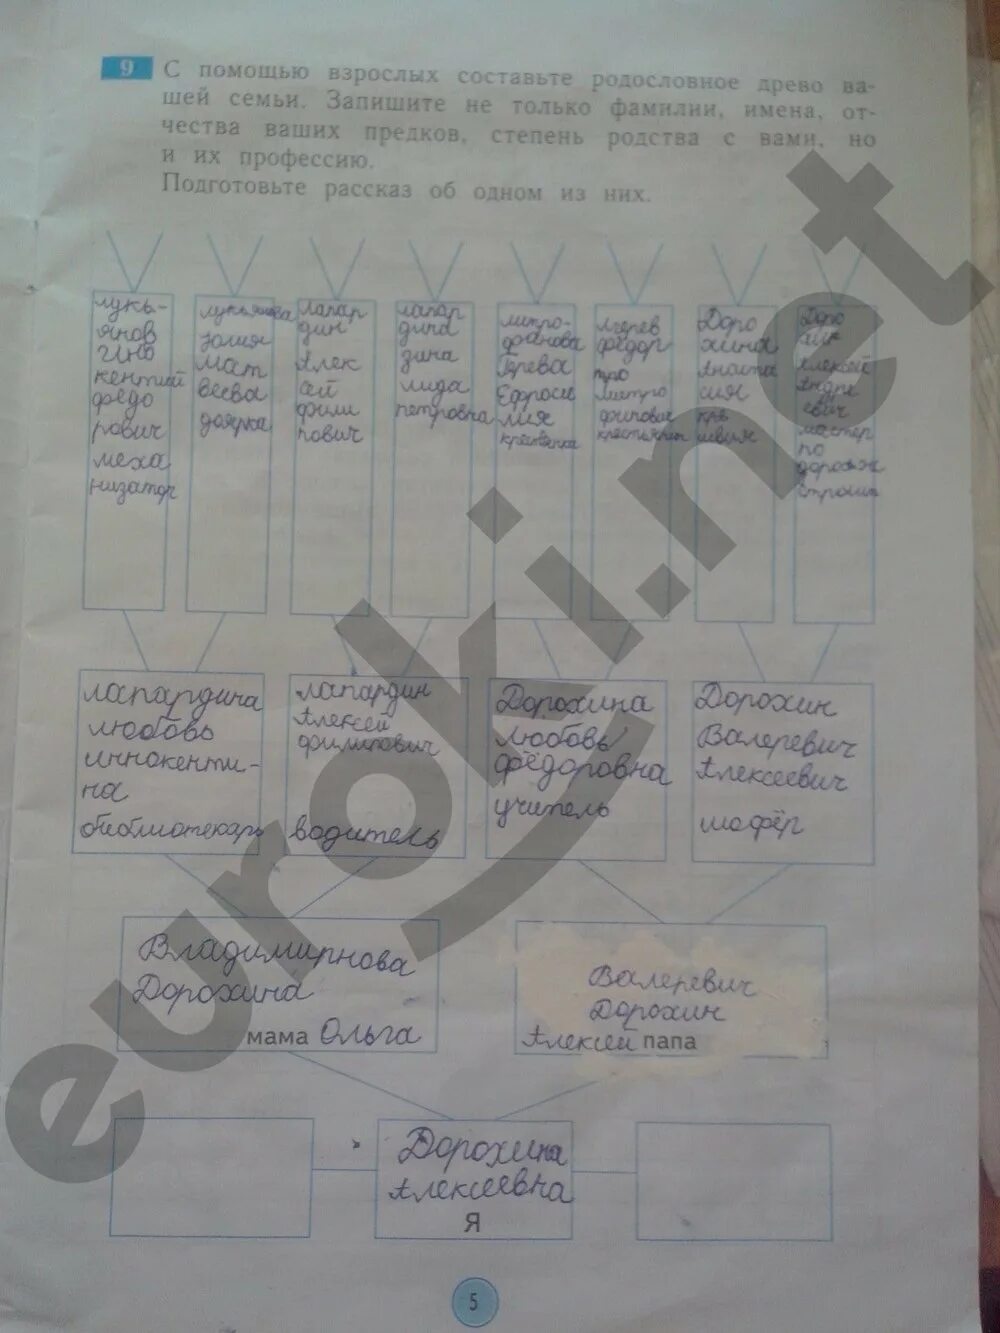 9 С помощью взрослых составьте родословное древо ва-
шей семьи. Запишите не только фамилии, имена, от-
чества ваших предков, степень родства с вами, но
и их профессию.
Подготовьте рассказ об одном из них.
лукь-
янов
кентий
федо
рович
меха
низатор
лукьянова
мат
веева
доярка
лапар
дин
Алек
сей
фили
пович
лапар
дина
зина
лида
петровна
митро-
фанова
Ефросин
крестьянка
федор
Митро
фанович
Доро
хина
Анаста
сия
Доро
Алексей
Андре
евич
мастер
по
лапардина
любовь
иннокенти-
на
библиотекарь
лапардин
Алексей
филипович
водитель
Дорохина
любовь
фёдоровна
учитель
Дорохин
Валеревич
Алексеевич
шофёр
Владимирнова
Дорохина
мама Ольга
Валеревич
Дорохин
Алексей папа
Дорохина
Алексеевна
Я
5
euroki.net